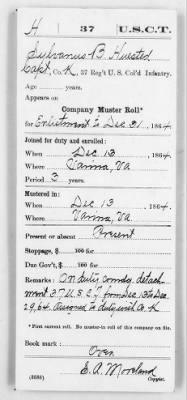 H 37 U.S.C.T.
Sylvanus B. Husted
Capt., Co. K, 37 Reg't U. S. Col'd Infantry.
Age years.
Appears on
Company Muster Roll*
for Enlistment to Dec 31, 1864
Joined for duty and enrolled:
When Dec 13, 1864.
Where Varina, Va
Period 3 years.
Mustered in:
When Dec 13, 1864.
Where Varina, Va
Present or absent Present
Stoppage, $ 100 for
Due Gov't, $ 100 for
Remarks: On duty comdg. detach
ment 37 U.S.C.T. from Dec 13 to Dec
29, 64. Assigned to duty with Co. K
*First current roll. No muster-in roll of this company on file.
Book mark:
Over
E. A. Moreland
(358b) Copyist.